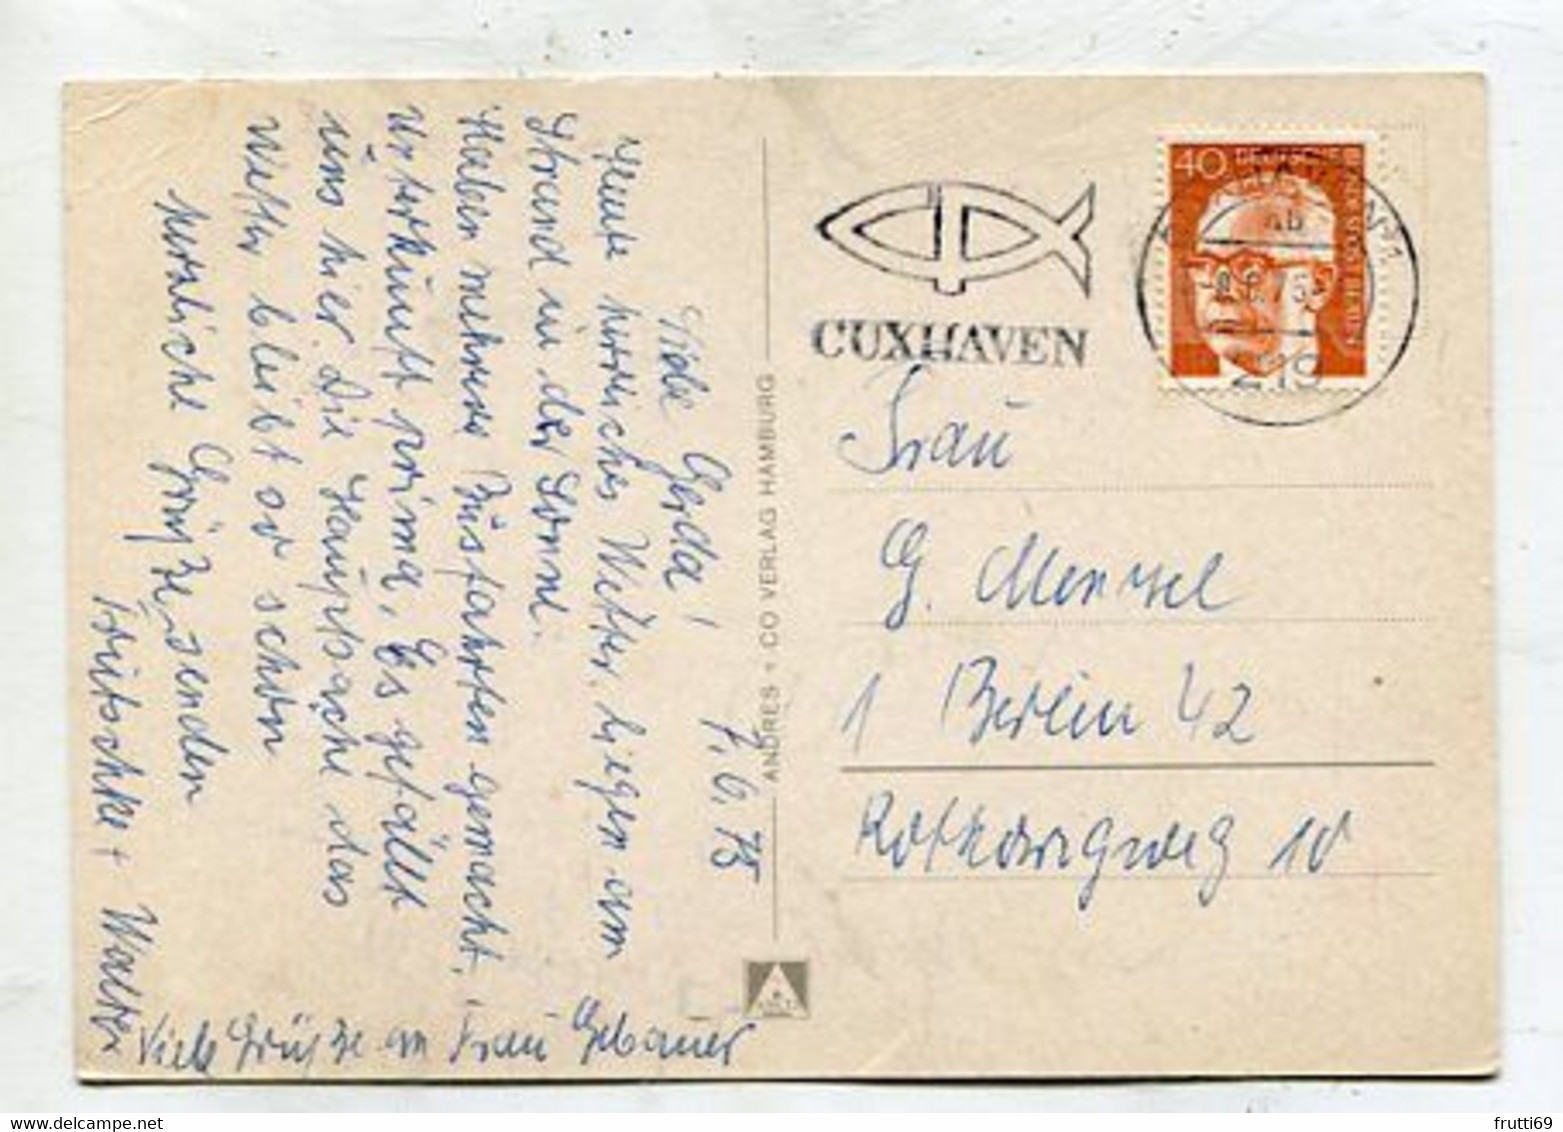 Liebe Gerda!
7.6.75
Heute herrliches Wetter, liegen am
Strand in der Sonne.
Haben mehrere Busfahrten gemacht,
Unterkunft prima, Es gefällt
uns hier. Die Hauptsache das
Wetter bleibt so schön
herzliche Grüße senden
+ Walter
Viele Grüße an Frau Gebauer
ANDRES + CO VERLAG HAMBURG
CUXHAVEN
40
219
Frau
G. Menzel
1 Berlin 42
10
frutti69